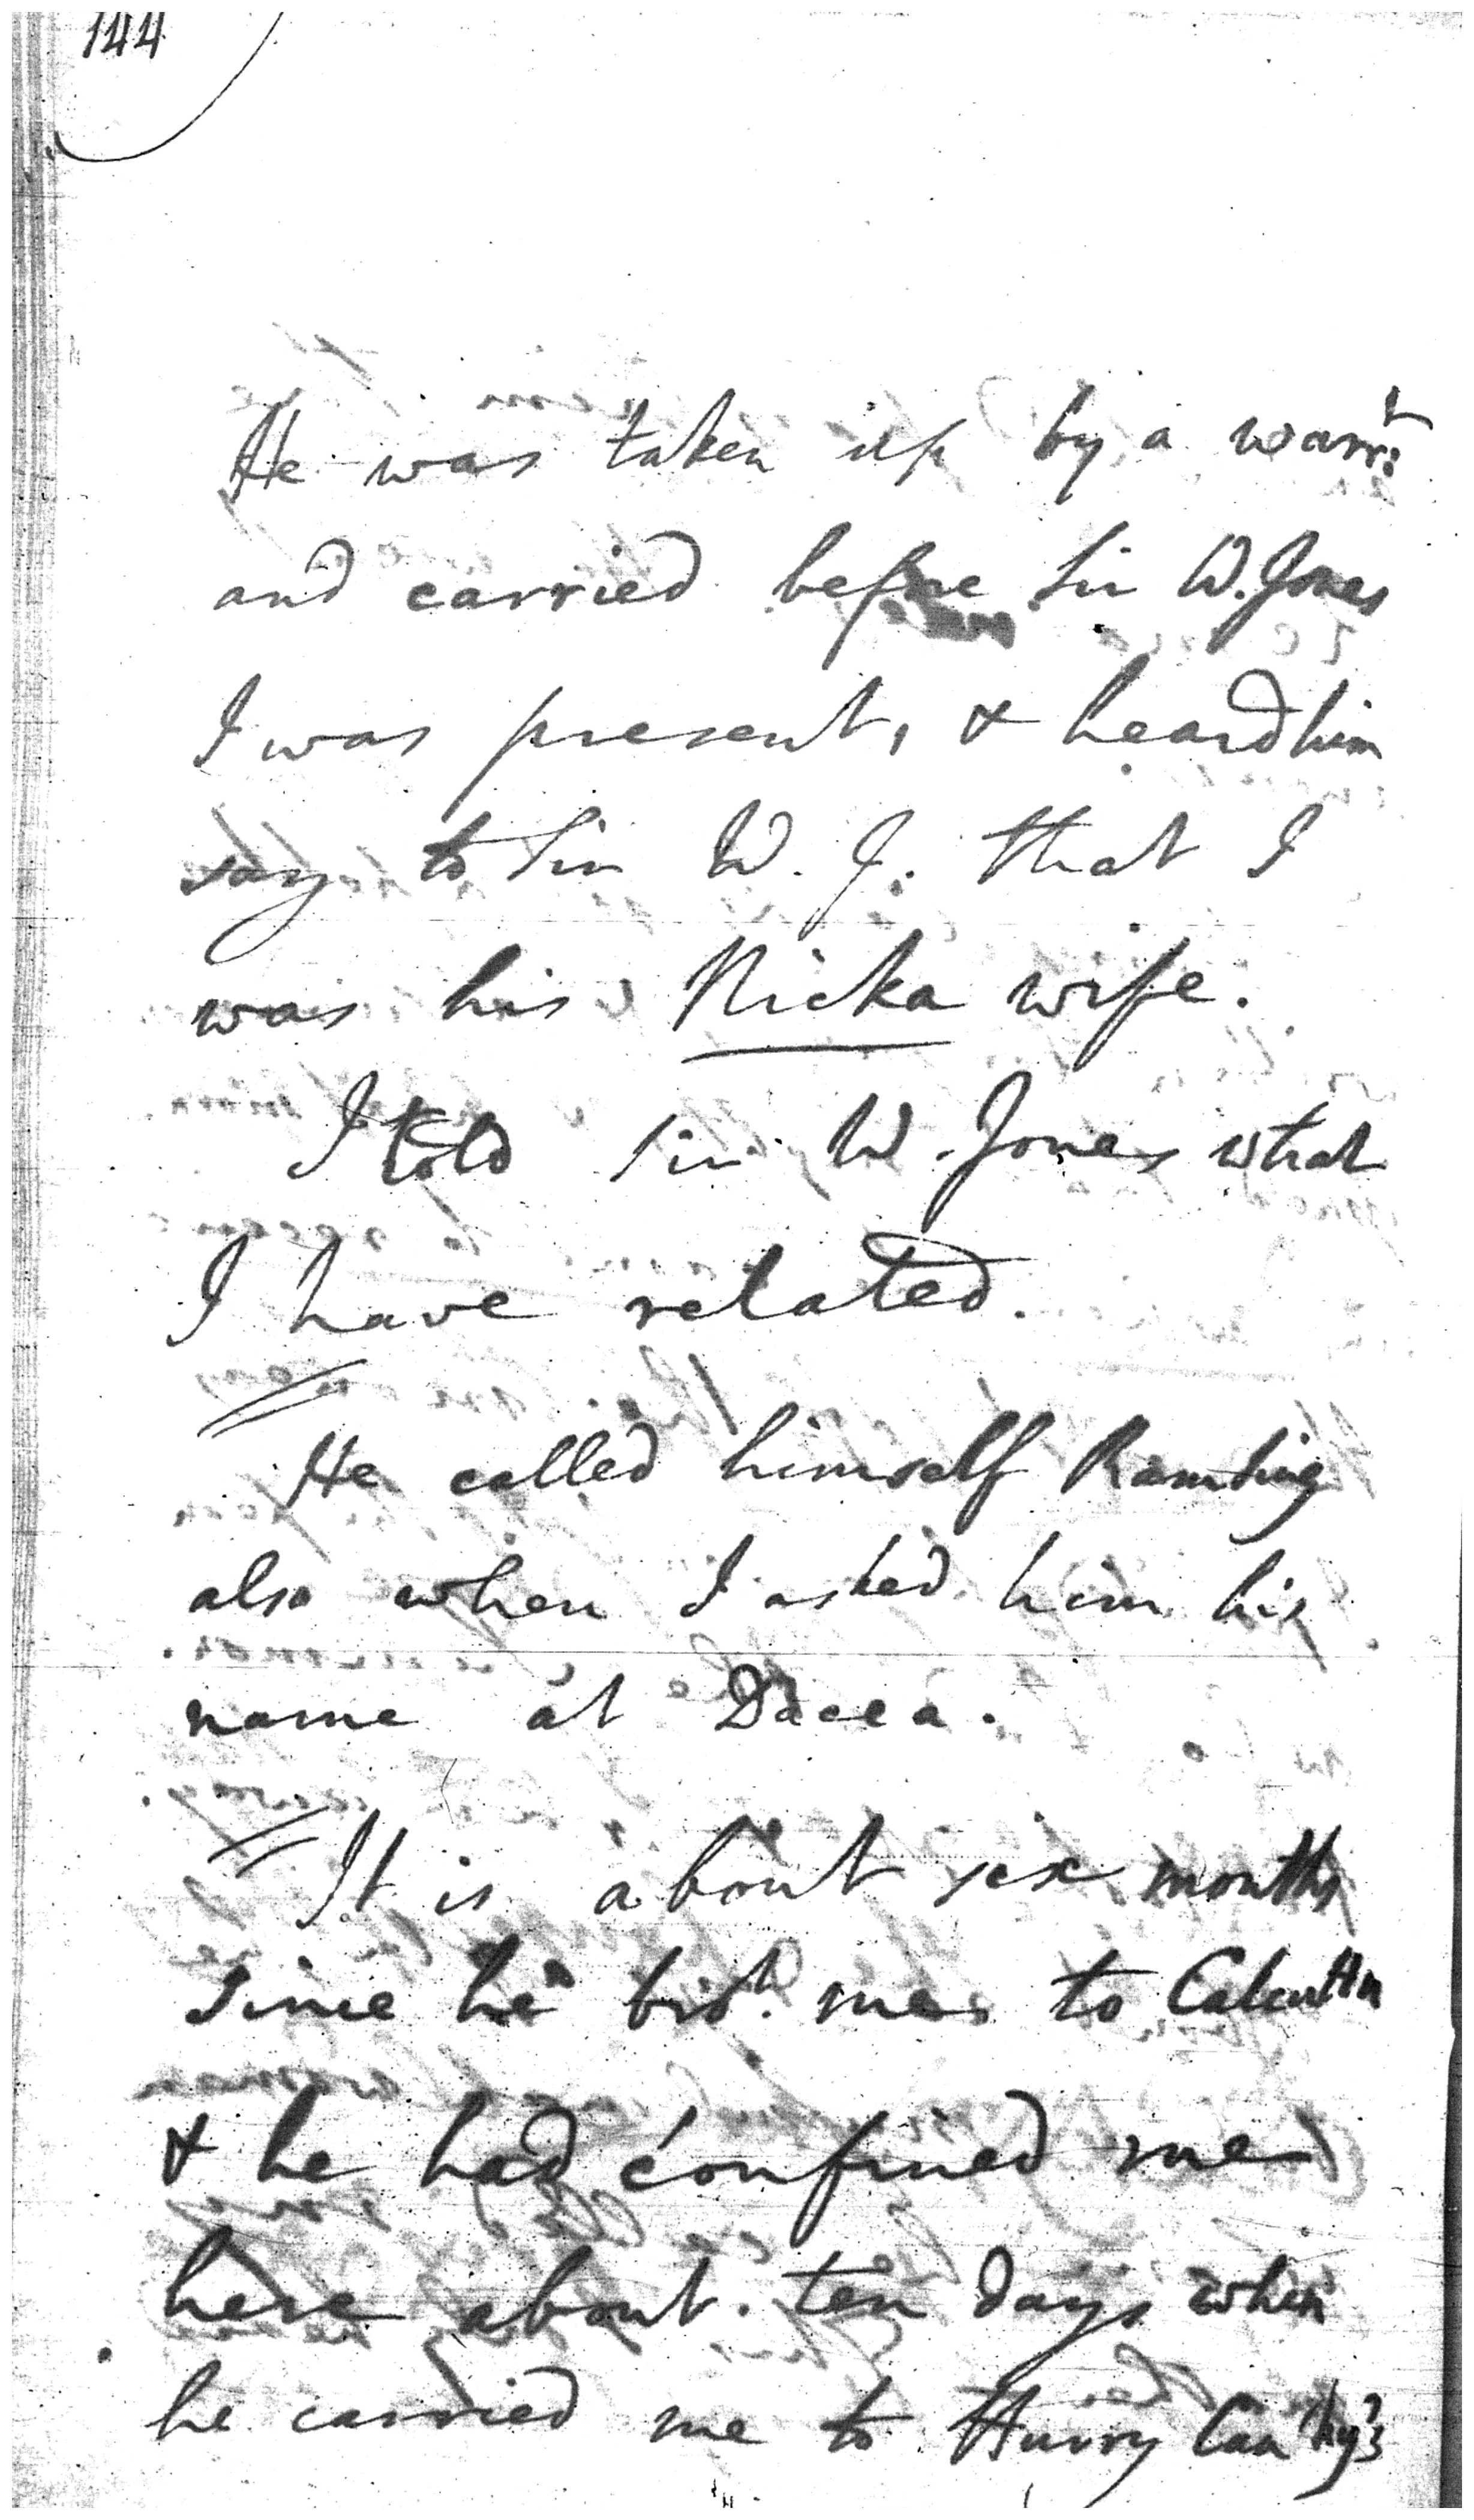 144
He was taken up by a warrt.
and carried before Sir W. Jones
I was present, & heard him
say to Sir W. J. that I
was his Nicka wife.
I told Sir W. Jones what
I have related.
He called himself Ramsing
also when I asked him his
name at Dacca.
It is about six months
since he brot. me to Calcutta
& he had confined me
here about ten days when
he carried me to Hurry